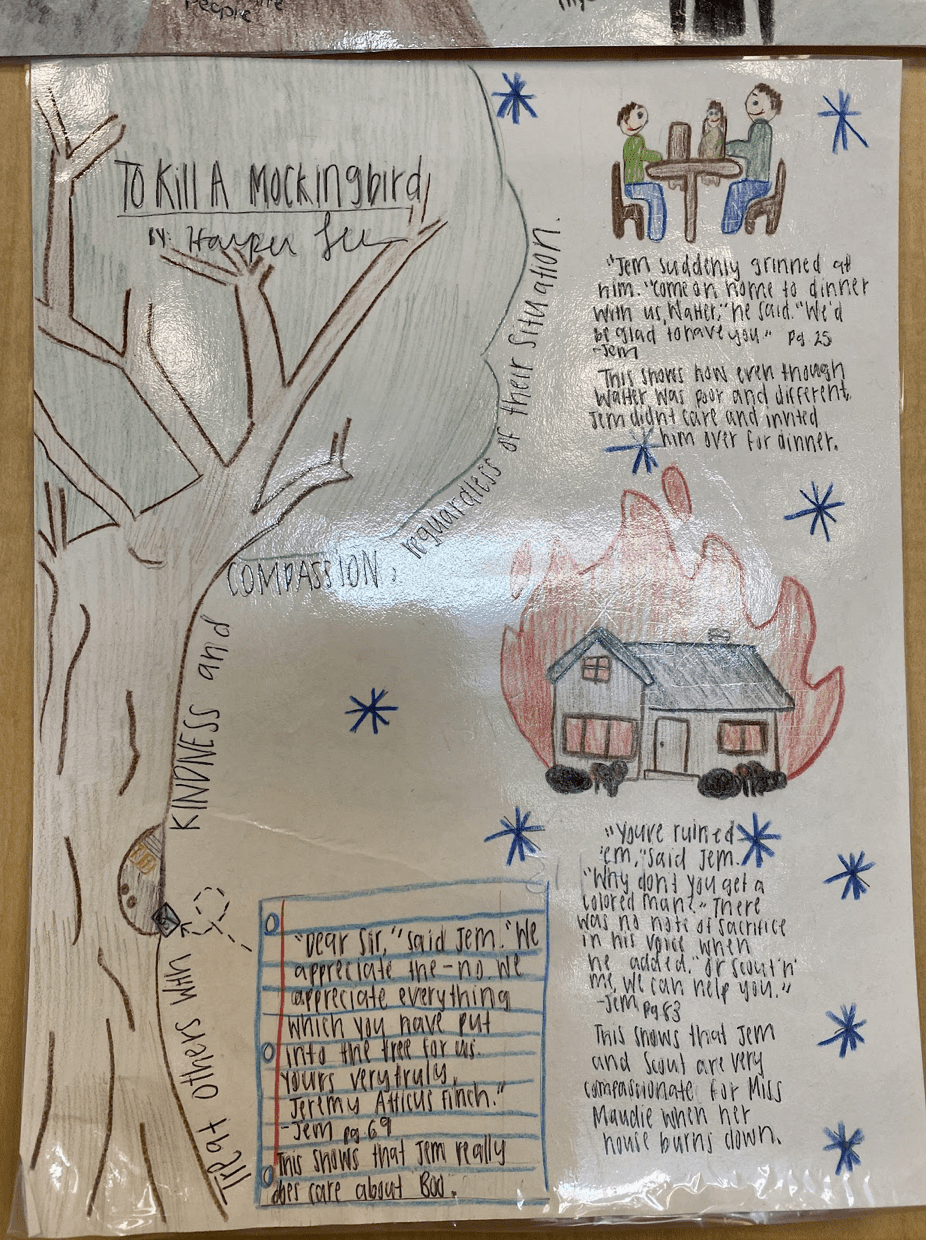 People
TO Kill A Mockingbird
BY: Harper Lee
Treat others with KINDNESS and COMPASSION, reguardless of their situation.
"Jem suddenly grinned at
him. "Come on home to dinner
with us, Walter," he said. "We'd
be glad to have you." Pg. 25
-Jem
This shows how even though
Walter was poor and different,
Jem didnt care and invited
him over for dinner.
"Youre ruined
'em," said Jem.
"Why don't you get a
colored man?" There
was no note of sacrifice
in his voice when
he added, "Or Scout'n'
me, we can help you."
-Jem pg 83
This shows that Jem
and Scout are very
compassionate for Miss
Maudie when her
house burns down.
"Dear Sir," said Jem. "We
appreciate the-no. We
appreciate everything
which you have put
into the tree for us.
Yours very truly,
Jeremy Atticus Finch."
-Jem pg 69
This shows that Jem really
does care about "Boo".